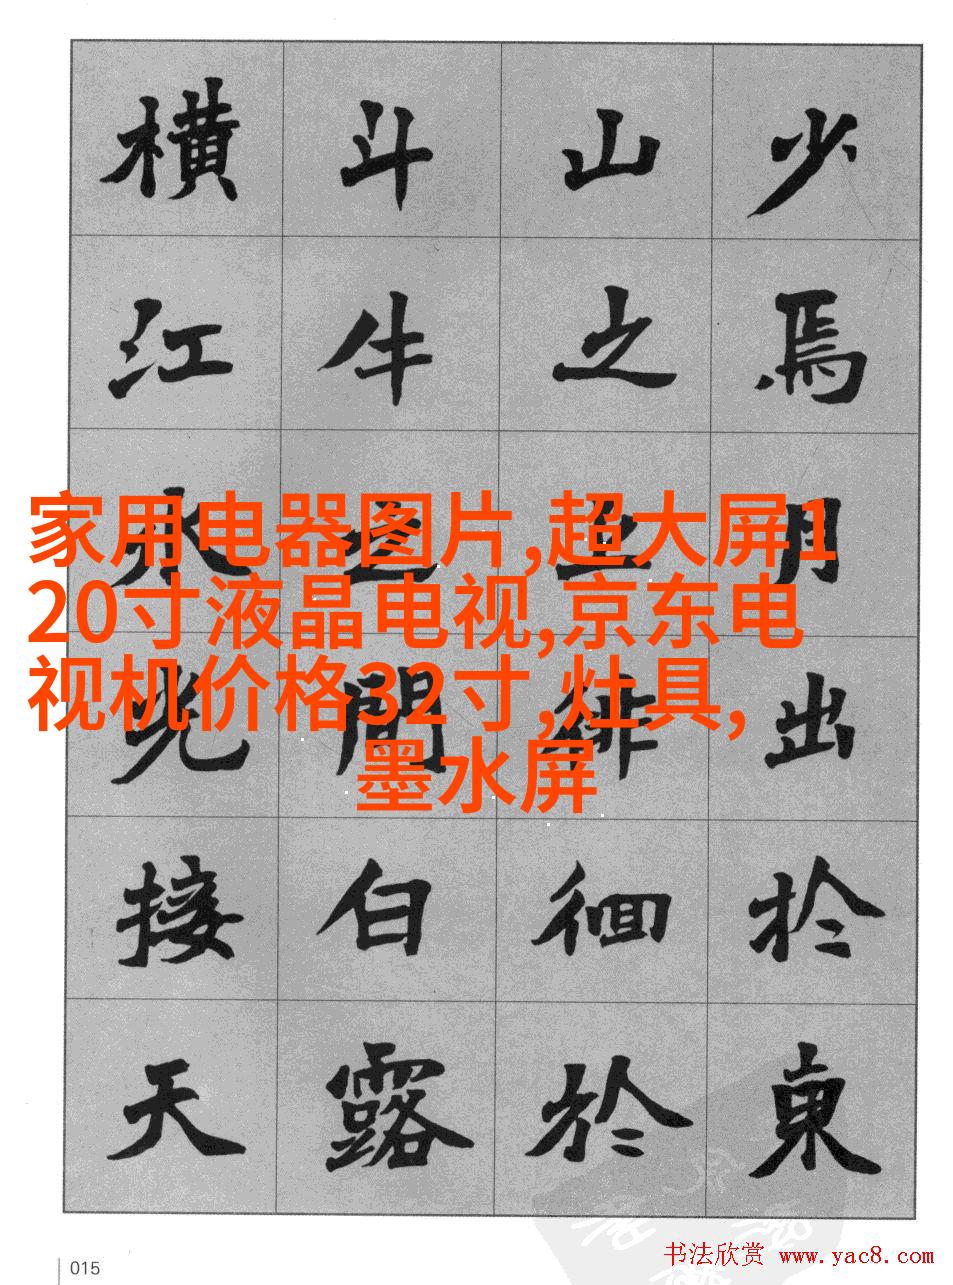 少焉月出於東
山之上徘徊於
斗牛之間白露
横江水光接天
家用电器图片,超大屏1
20寸液晶电视,京东电
视机价格32寸,灶具,
墨水屏
015
书法欣赏 www.yac8.com